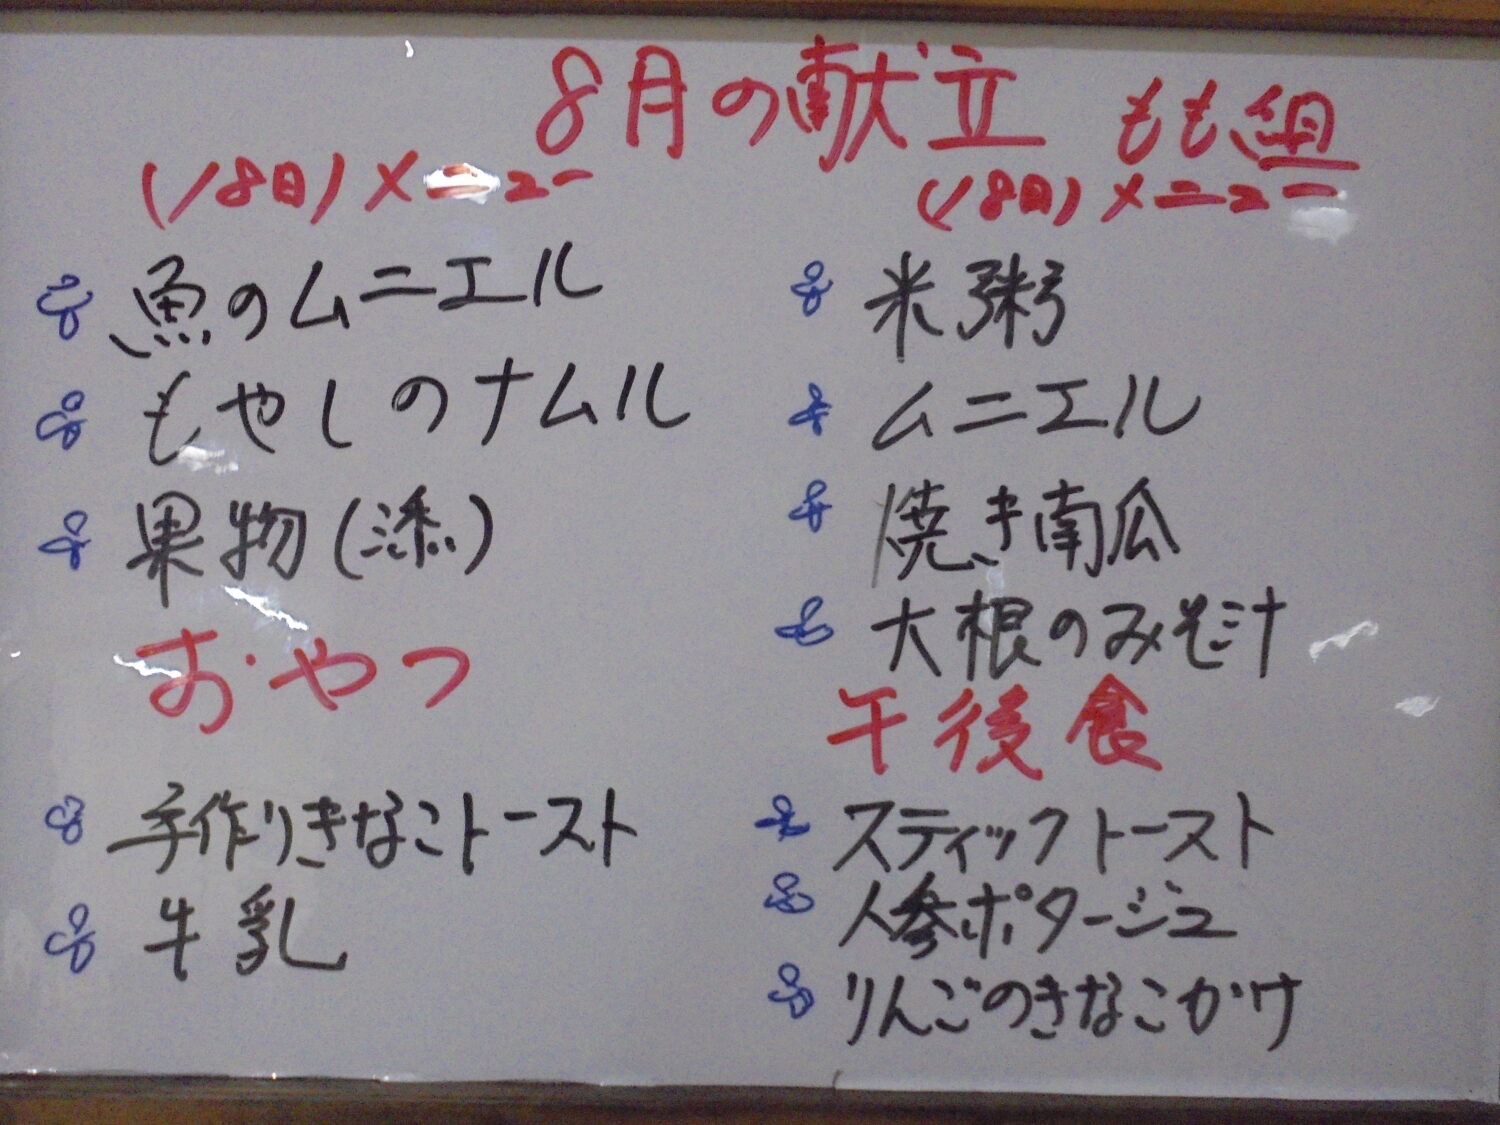 8月の献立 もも組
(18日)メニュー
魚のムニエル
もやしのナムル
果物(添)
おやつ
手作りきなこトースト
牛乳
(18日)メニュー
米粥
ムニエル
焼き南瓜
大根のみそ汁
午後食
スティックトースト
人参ポタージュ
りんごのきなこかけ